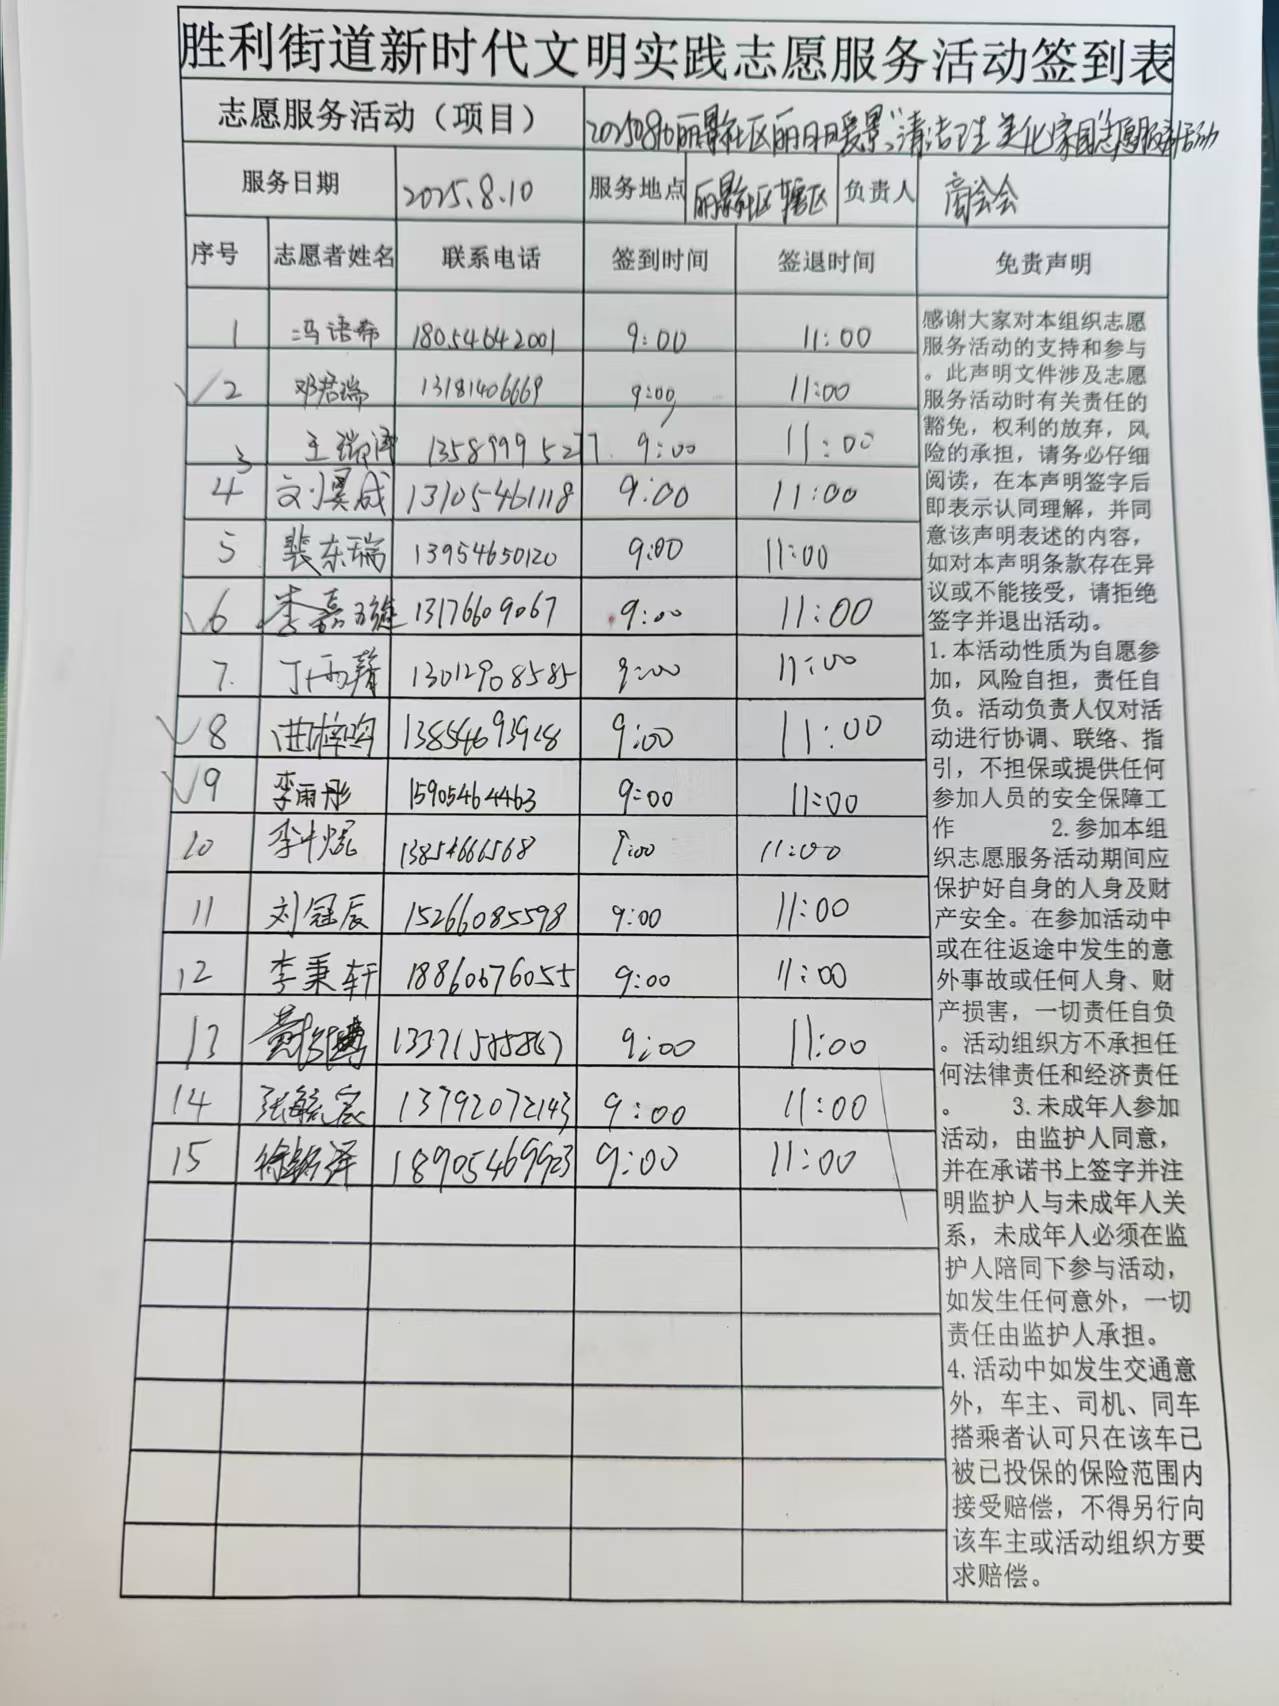 胜利街道新时代文明实践志愿服务活动签到表
志愿服务活动（项目） 20250810丽景社区丽日暖景“清洁卫生 美化家园”志愿服务活动
服务日期 2025.8.10 服务地点 丽景社区辖区 负责人 商会会
序号 志愿者姓名 联系电话 签到时间 签退时间 免责声明
1 冯语希 18054642001 9:00 11:00
2 邓君瑞 13181406669 9:00 11:00
3 王瑞泽 13589995277. 9:00 11:00
4 刘昊成 13105461118 9:00 11:00
5 裴东瑞 13954650120 9:00 11:00
6 李嘉 13176609067 9:00 11:00
7. 丁雨馨 13012908585 9:00 11:00
8 13854693928 9:00 11:00
9 李雨彤 15905464463 9:00 11:00
10 李 13854666568 9:00 11:00
11 刘冠辰 15266085598 9:00 11:00
12 李秉轩 18860676055 9:00 11:00
13 黄 9:00 11:00
14 张毓宸 13792072143 9:00 11:00
15 徐铭泽 18905469923 9:00 11:00
感谢大家对本组织志愿
服务活动的支持和参与
。此声明文件涉及志愿
服务活动时有关责任的
豁免，权利的放弃，风
险的承担，请务必仔细
阅读，在本声明签字后
即表示认同理解，并同
意该声明表述的内容，
如对本声明条款存在异
议或不能接受，请拒绝
签字并退出活动。
1.本活动性质为自愿参
加，风险自担，责任自
负。活动负责人仅对活
动进行协调、联络、指
引，不担保或提供任何
参加人员的安全保障工
作 2.参加本组
织志愿服务活动期间应
保护好自身的人身及财
产安全。在参加活动中
或在往返途中发生的意
外事故或任何人身、财
产损害，一切责任自负
。活动组织方不承担任
何法律责任和经济责任
。 3.未成年人参加
活动，由监护人同意，
并在承诺书上签字并注
明监护人与未成年人关
系，未成年人必须在监
护人陪同下参与活动，
如发生任何意外，一切
责任由监护人承担。
4.活动中如发生交通意
外，车主、司机、同车
搭乘者认可只在该车已
被已投保的保险范围内
接受赔偿，不得另行向
该车主或活动组织方要
求赔偿。